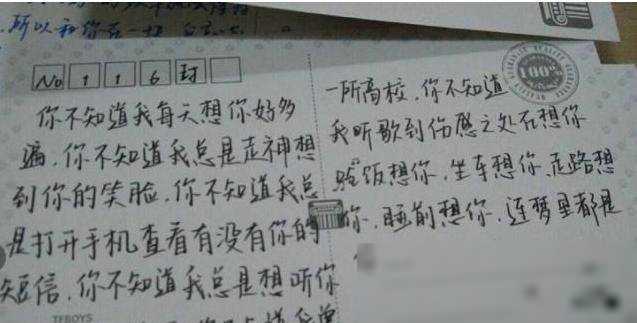 所以和你在一起
No 1 1 6 封
你不知道我每天想你好多
遍,你不知道我总是走神想
到你的笑脸,你不知道我总
是打开手机查看有没有你的
短信,你不知道我总是想听你
TFBOYS
一所高校,你不知道
我听歌到伤感之处在想你
吃饭想你,坐车想你,走路想
你,睡前想你,连梦里都是
100%